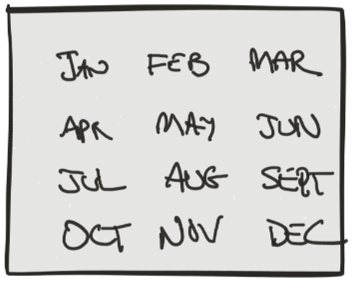 JAN FEB MAR
APR MAY JUN
JUL AUG SEPT
OCT NOV DEC